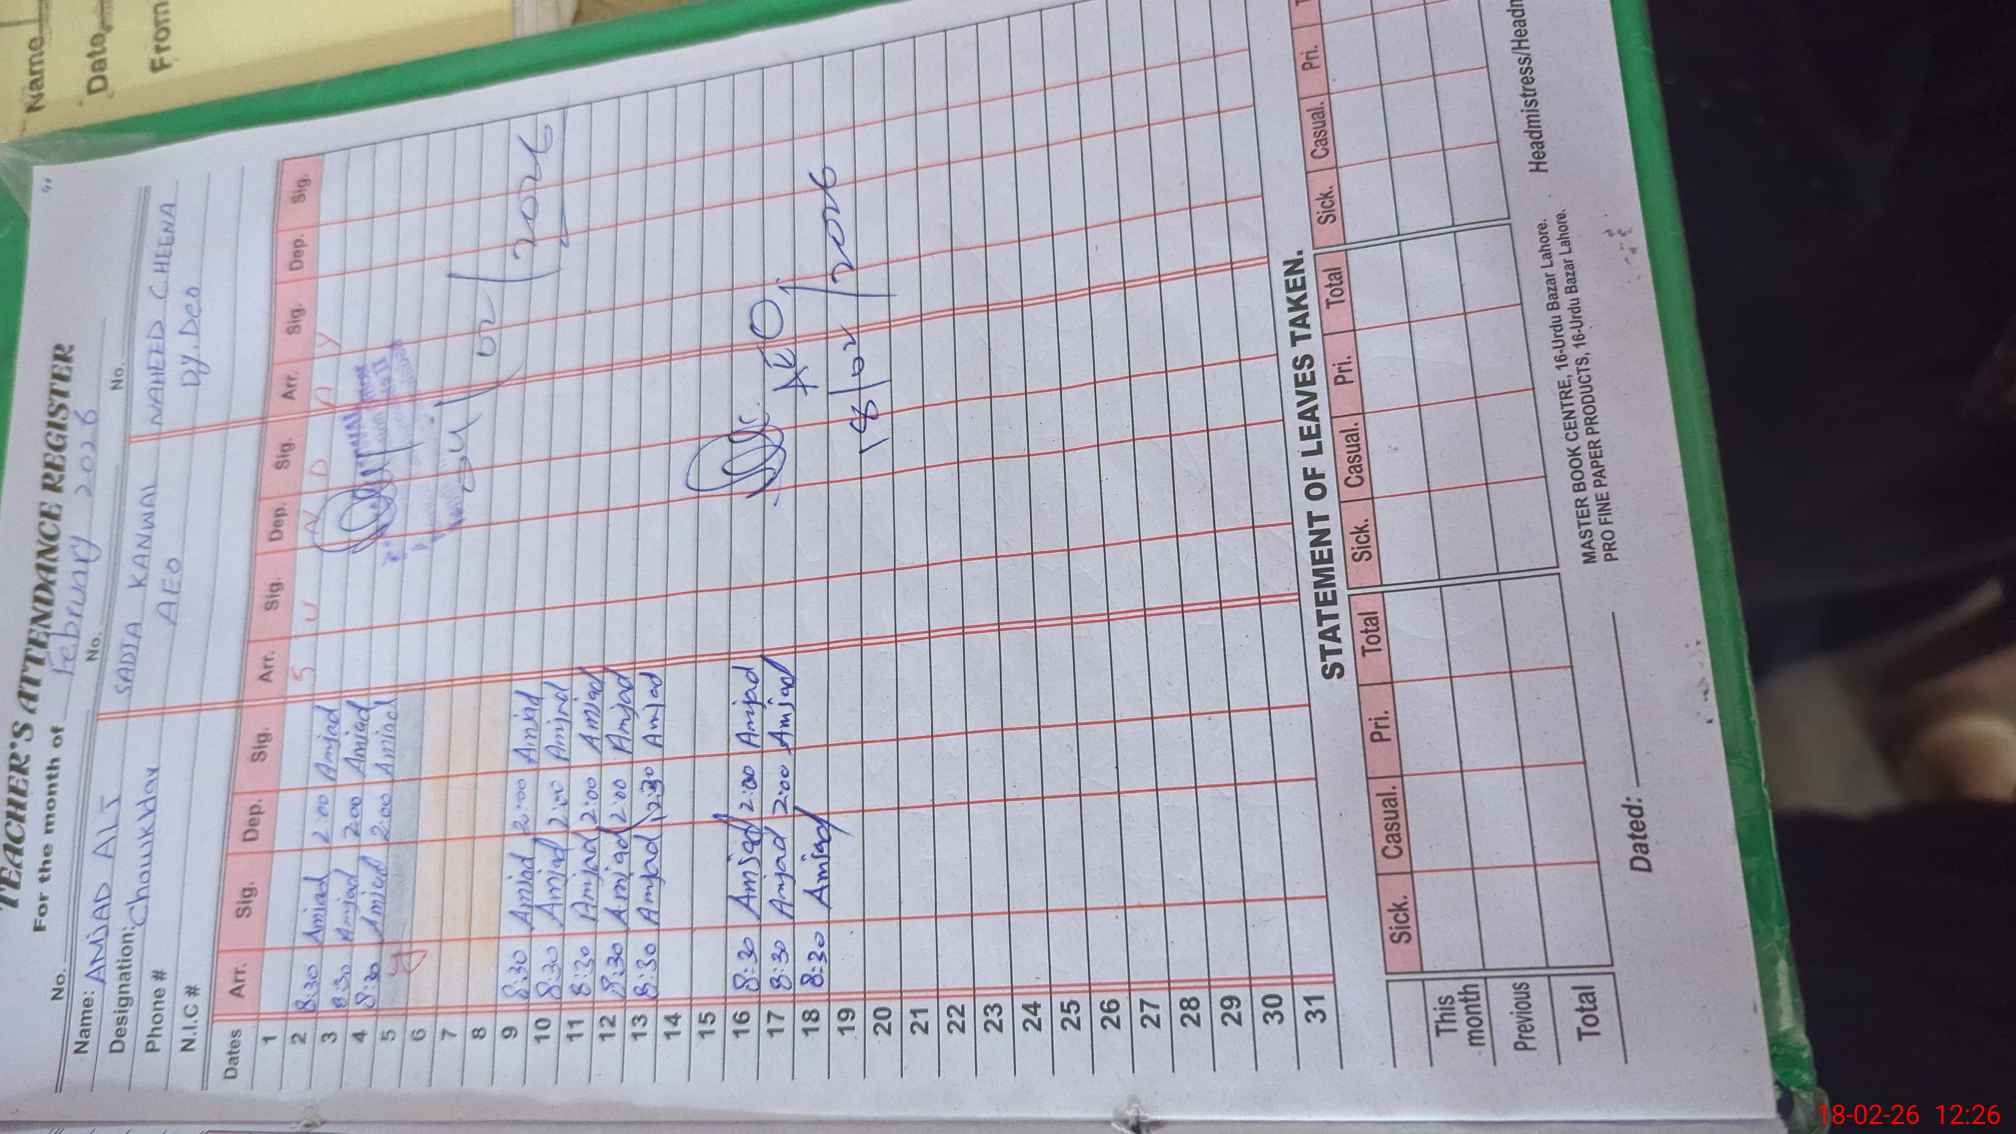 Name
Date
From
TEACHER'S ATTENDANCE REGISTER
For the month of February 2026
No. No. No.
Name: AMJAD ALI SADIA KANWAL NAHEED CHEENA
Designation: Chowkidar AEO Dy.DEO
Phone #
N.I.C #
Dates Arr. Sig. Dep. Sig. Arr. Sig. Dep. Sig. Arr. Sig. Dep. Sig.
1 S U N D A Y
2 8:30 Amjad 2:00 Amjad
3 8:30 Amjad 2:00 Amjad
4 8:30 Amjad 2:00 Amjad
5
6
7
8
9 8:30 Amjad 2:00 Amjad
10 8:30 Amjad 2:00 Amjad
11 8:30 Amjad 2:00 Amjad
12 8:30 Amjad 2:00 Amjad
13 8:30 Amjad 12:30 Amjad
14
15
16 8:30 Amjad 2:00 Amjad
17 8:30 Amjad 2:00 Amjad
18 8:30 Amjad
19
20
21
22
23
24
25
26
27
28
29
30
31
02/2026
AEO
18/02/2026
STATEMENT OF LEAVES TAKEN.
Sick. Casual. Pri. Total Sick. Casual. Pri. Total Sick. Casual. Pri.
This month
Previous
Total
MASTER BOOK CENTRE, 16-Urdu Bazar Lahore.
PRO FINE PAPER PRODUCTS, 16-Urdu Bazar Lahore.
Dated:
Headmistress/Headm
18-02-26 12:26